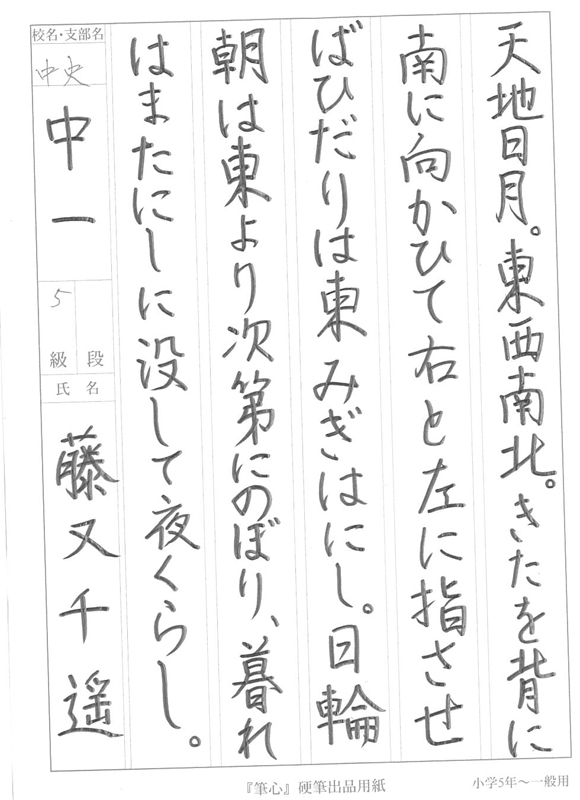 天地日月。東西南北。きたを背に
南に向かひて右と左に指させ
ばひだりは東みぎはにし。日輪
朝は東より次第にのぼり、暮れ
はまたにしに没して夜くらし。
校名・支部名
中史
中一
5
級 段
氏名
藤又千遥
『筆心』硬筆出品用紙
小学5年〜一般用